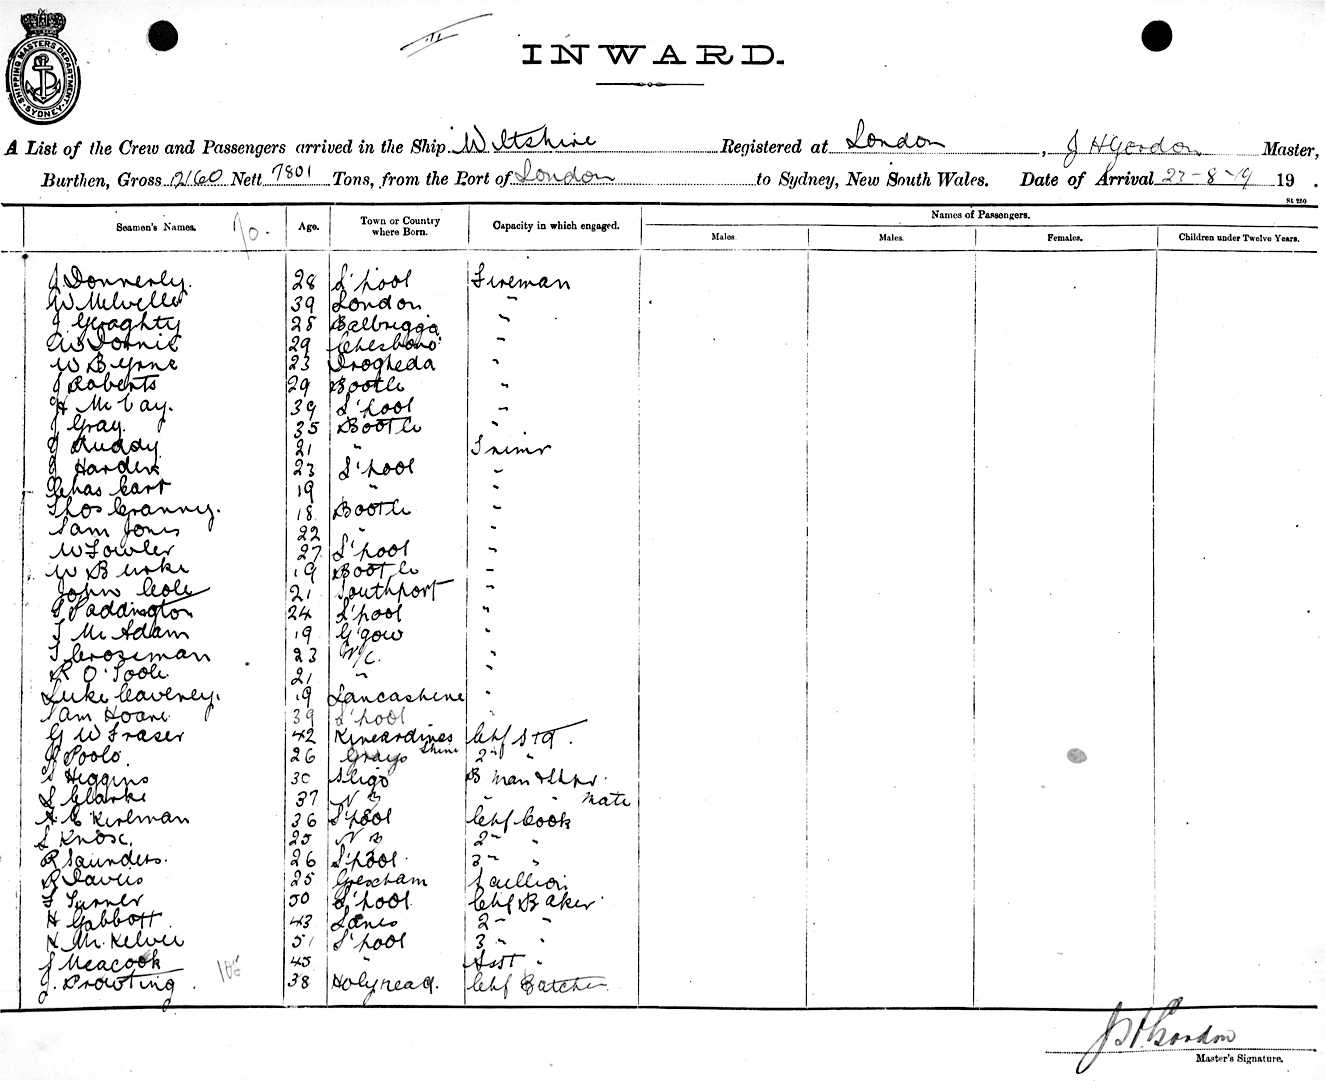 SHIPPING MASTERS DEPARTMENT SYDNEY
INWARD.
A List of the Crew and Passengers arrived in the Ship Wiltshire Registered at London, J H Gordon Master,
Burthen, Gross 12160 Nett 7801 Tons, from the Port of London to Sydney, New South Wales. Date of Arrival 19 .
Names of Passengers.
Seamen's Names. Age. Town or Country where Born. Capacity in which engaged. Males Males. Females. Children under Twelve Years.
J Donnerly. 28 L'pool Fireman
W Melville 39 London "
J Geraghty 28 "
29 "
W Byrne 23 Drogheda "
J Roberts 29 Bootle "
H McCay. 39 L'pool "
J Gray. 35 Bootle "
J Ruddy 21 " Trimr
Harden 23 L'pool "
Chas Carr 19 " "
Thos Cranny. 18 Bootle "
Sam Jones 22 " "
W Fowler 27 L'pool "
W Burke 19 Bootle "
John Cole 21 Southport "
Paddington 24 L'pool "
T McAdam 19 G'gow "
T Crossman 23 "
R O'Toole 21 " "
Luke Caveney. 19 Lancashire "
Sam Hoare 39 L'pool "
G W Fraser 42 Kincardines shire Chf Std.
Poole. 26 Grays 2nd "
Higgins 30 Sligo B man & Strs.
S Clarke 37 N B " " mate
A E Kirlman 36 L'pool Chf Cook
S Knox. 25 N B 2 "
R Saunders. 26 L'pool 3 "
R Davies 25 Scullion
Turner 50 L'pool Chf Baker
H Gabbott 43 Lancs 2 "
H McKelvie 51 L'pool 3 "
J Meacock 45 " Asst "
J. Prowting 38 Holyhead. Chf Butcher
J H Gordon
Master's Signature.